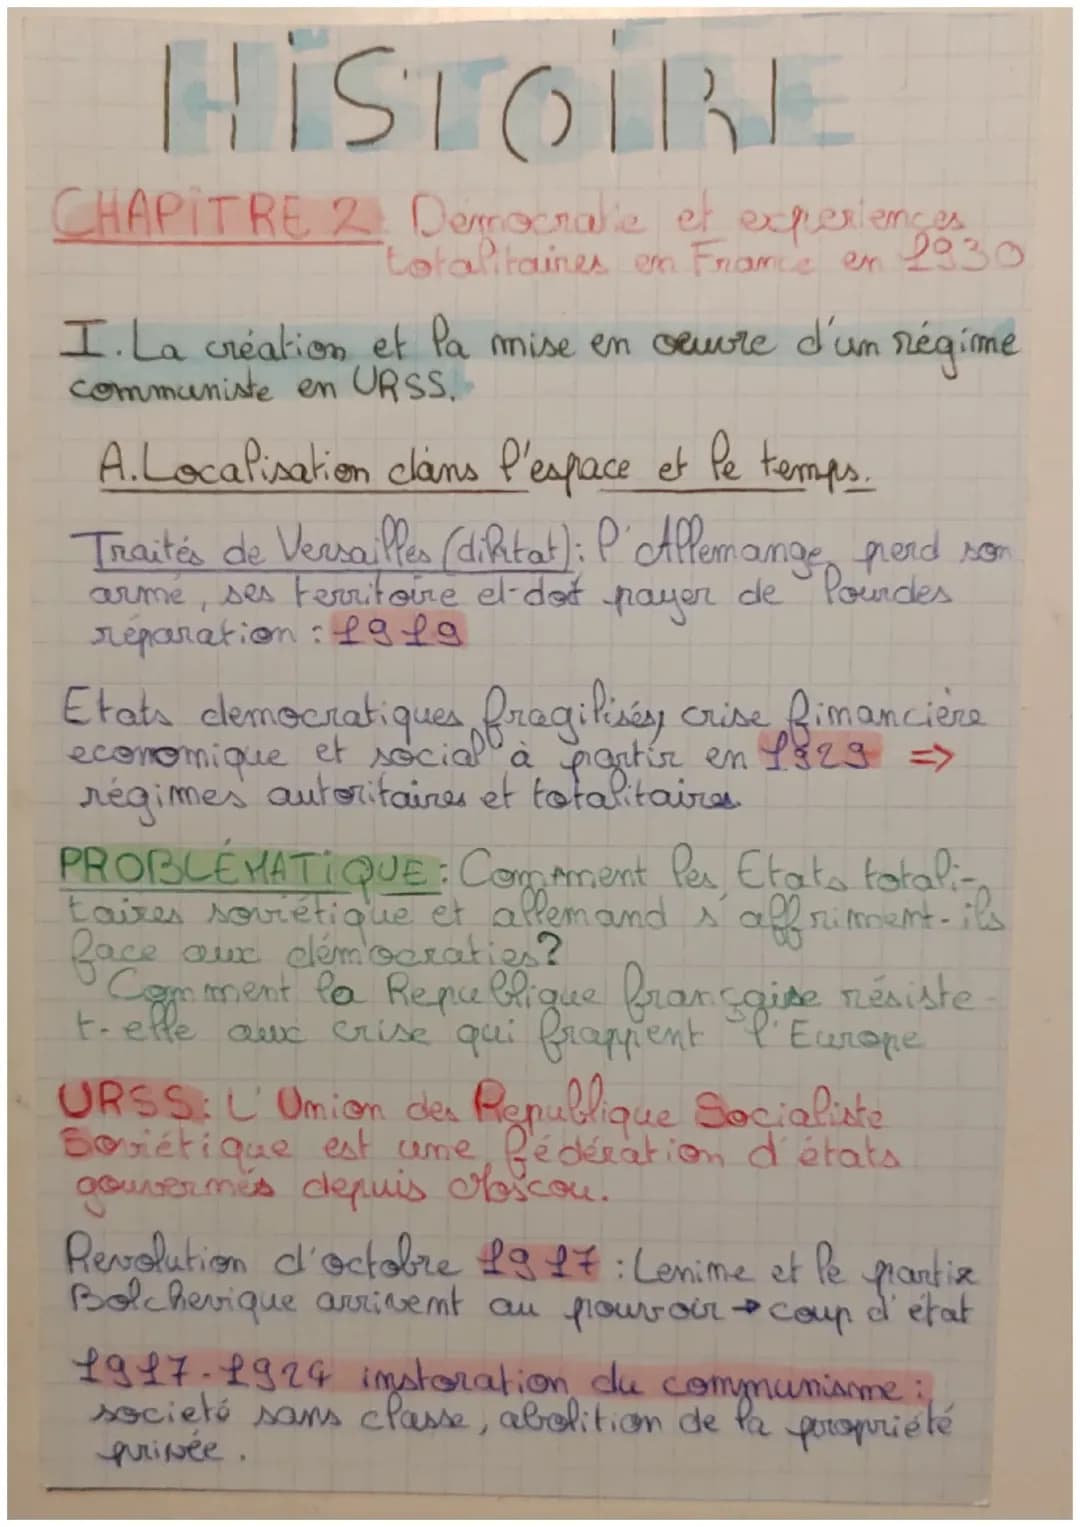 HiSTOiRE
CHAPiTRE 2: Démocratie et experiences
totalitaires en France en 1930
I. La création et la mise en oeuvre d'un régime
communiste en URSS.
A. Localisation dans l'espace et le temps.
Traités de Versailles (diktat): l'Allemange perd son
armé, ses territoire et doit payer de lourdes
réparation : 1919
Etats democratiques fragilisés, crise financière
economique et social à partir en 1929 =>
régimes autoritaires et totalitaires.
PROBLÉMATiQUE: Comment les Etats totali-
taires soviétique et allemand s'affriment-ils
face aux démocraties?
Comment la Republique française résiste-
t-elle aux crise qui frappent l'Europe
URSS: L'Union des Republique Socialiste
Soviétique est une fédération d'états
gouvernés depuis Moscou.
Revolution d'octobre 1917 : Lenine et le partie
Bolchevique arrivent au pouvoir → coup d'état
1917-1924 instoration du communisme :
societé sans classe, abolition de la propriété
privée.